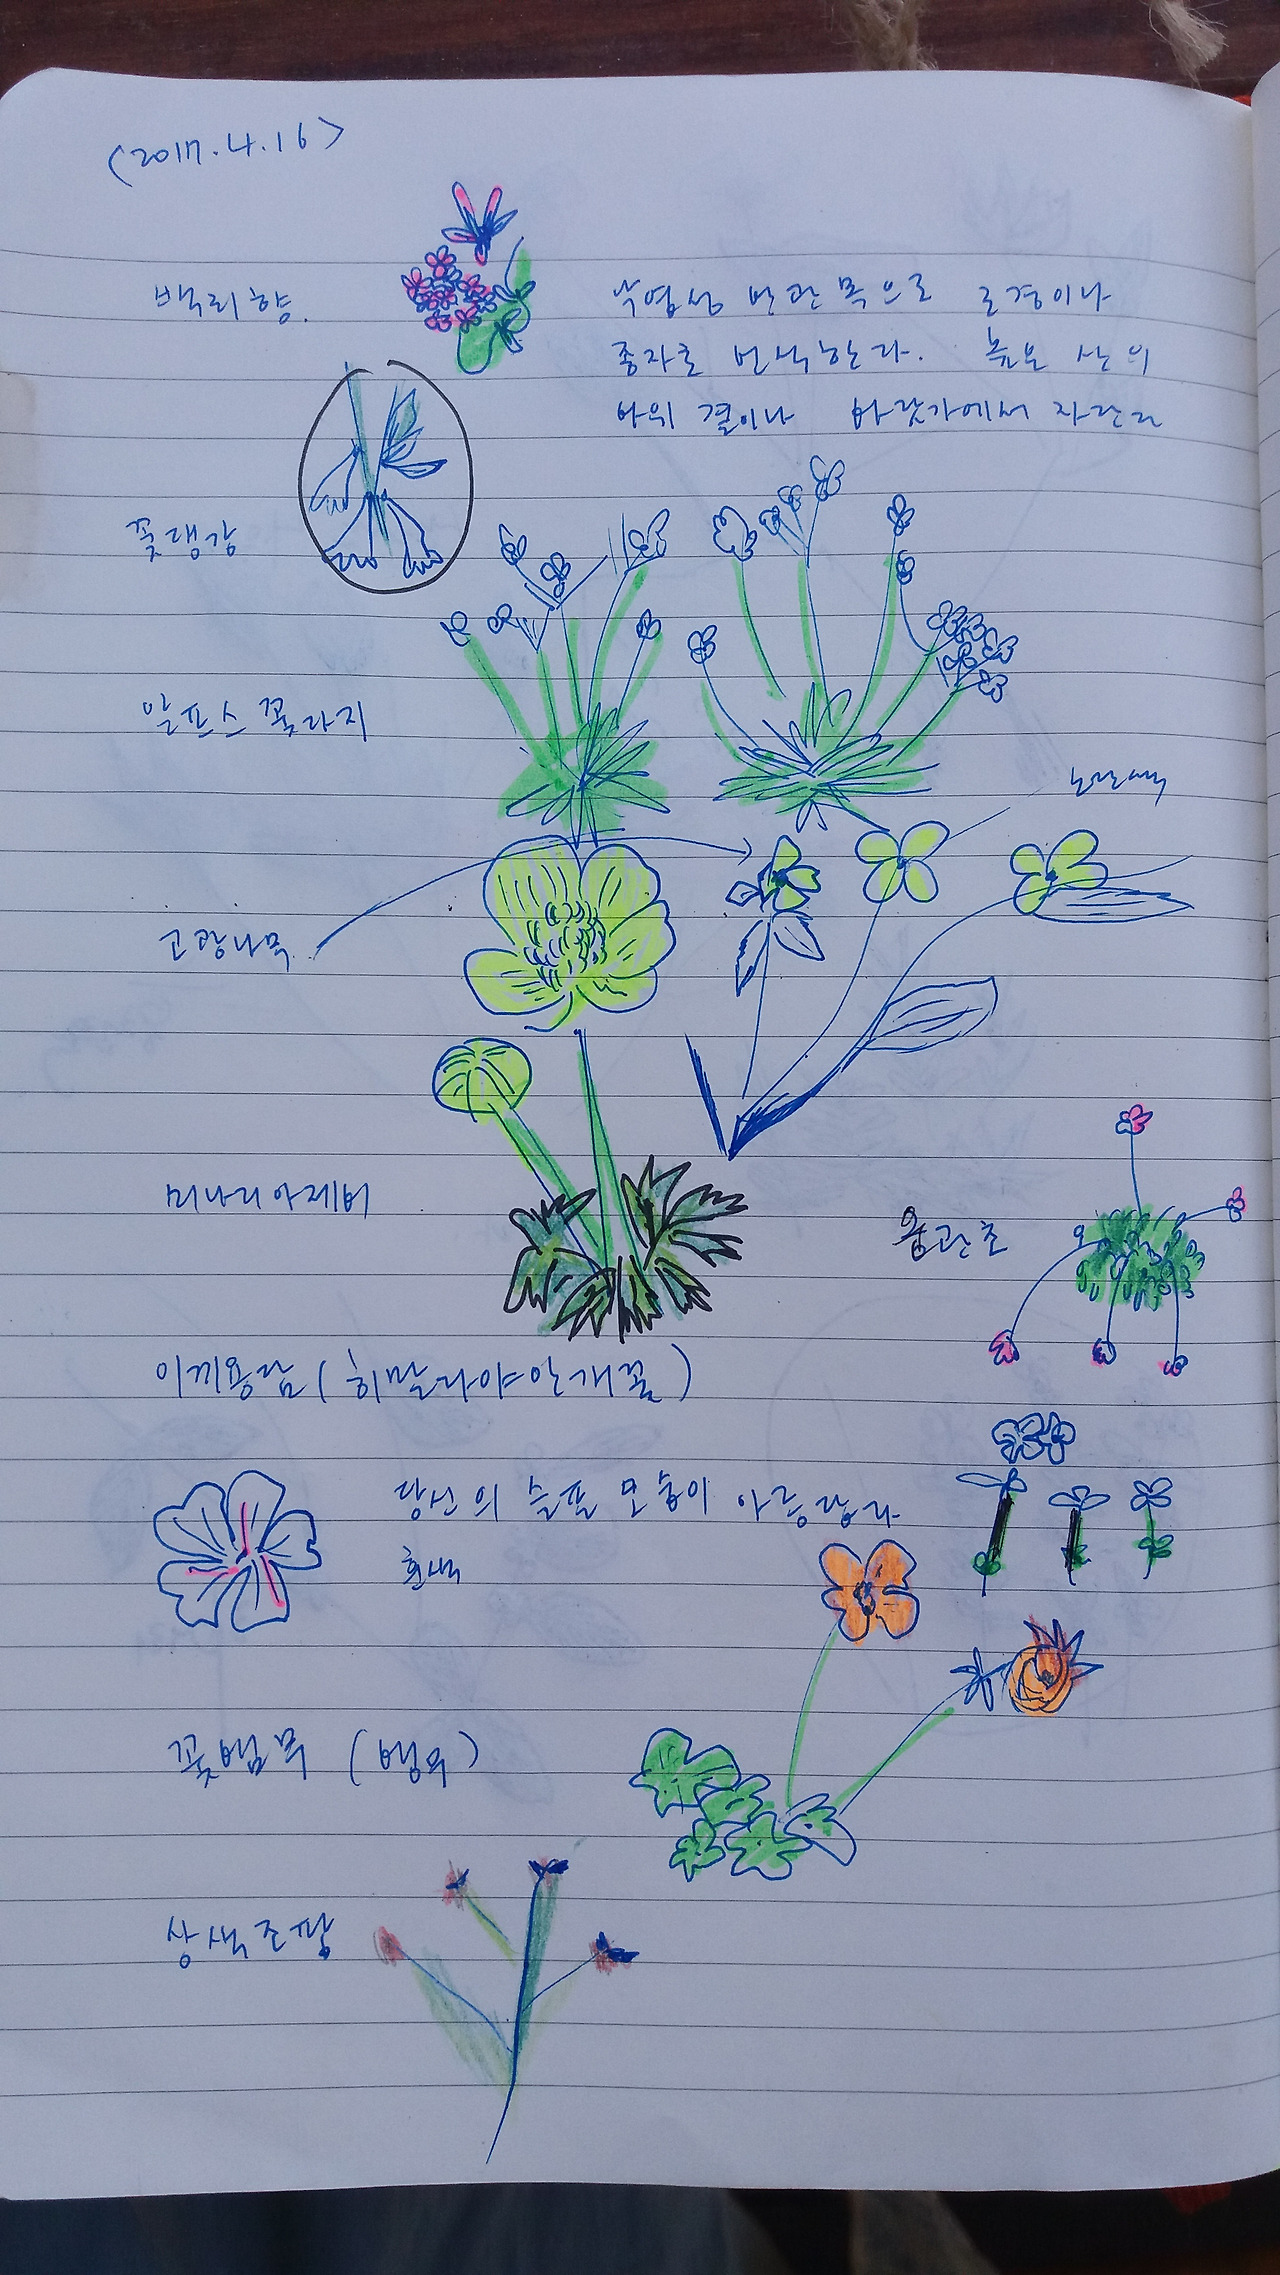 (2017.4.16)
백리향.
낙엽성 반관목으로 로경이나
종자로 번식한다. 높은 산의
바위 곁이나 바닷가에서 자란다
꽃댕강
알프스 꽃라지
노란색
고광나무
미나리아제비
용관초
이끼용담(히말라야안개꽃)
당신의 슬픈 모습이 아름답다
흰색
꽃뱀무 (뱅무)
삼색조팝